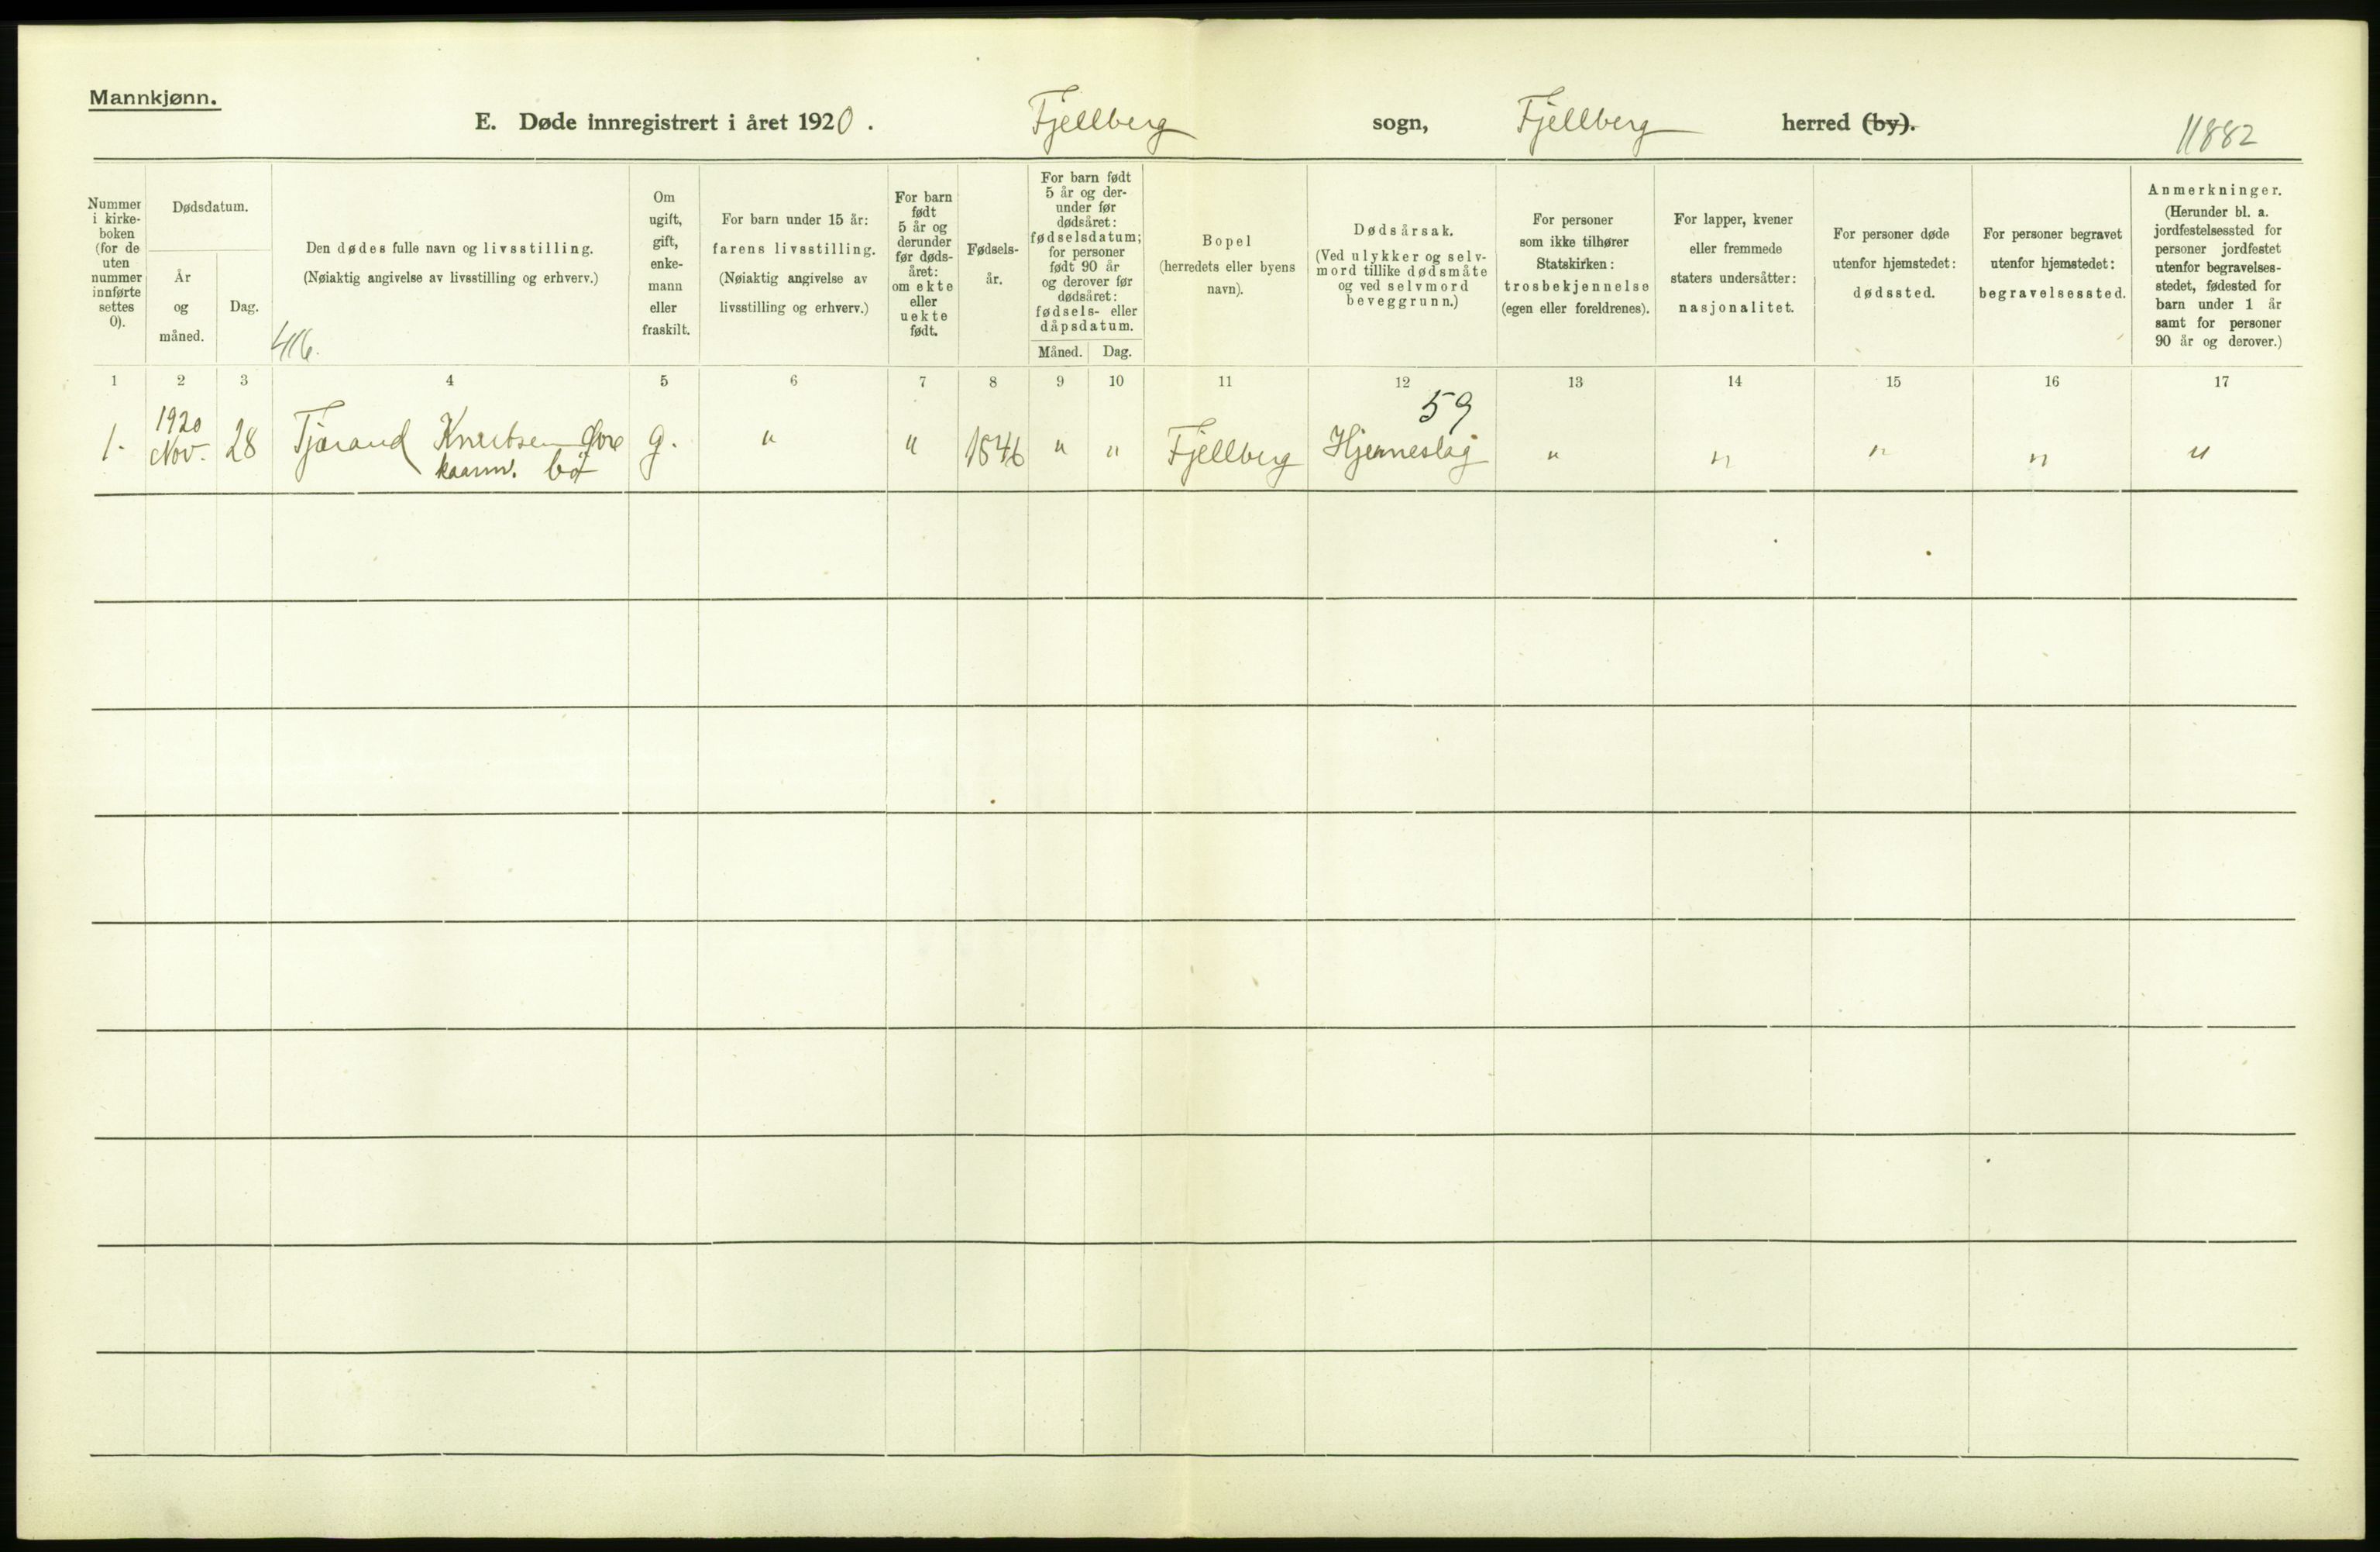 Mannkjønn.
E. Døde innregistrert i året 1920. Fjellberg sogn, Fjellberg herred (by).
11882
Nummer i kirkeboken (for de uten nummer innførte settes 0).
Dødsdatum.
År og måned.
Dag.
Den dødes fulle navn og livsstilling.
(Nøiaktig angivelse av livsstilling og erhverv.)
416.
Om ugift, gift, enkemann eller fraskilt.
For barn under 15 år: farens livsstilling.
(Nøiaktig angivelse av livsstilling og erhverv.)
For barn født 5 år og derunder før dødsåret: om ekte eller uekte født.
Fødselsår.
For barn født 5 år og derunder før dødsåret: fødselsdatum; for personer født 90 år og derover før dødsåret: fødsels- eller dåpsdatum.
Måned. Dag.
Bopel
(herredets eller byens navn).
Dødsårsak.
(Ved ulykker og selvmord tillike dødsmåte og ved selvmord beveggrunn.)
For personer som ikke tilhører Statskirken: trosbekjennelse (egen eller foreldrenes).
For lapper, kvener eller fremmede staters undersåtter: nasjonalitet.
For personer døde utenfor hjemstedet: dødssted.
For personer begravet utenfor hjemstedet: begravelsessted.
Anmerkninger.
(Herunder bl. a. jordfestelsessted for personer jordfestet utenfor begravelsesstedet, fødested for barn under 1 år samt for personer 90 år og derover.)
1 2 3 4 5 6 7 8 9 10 11 12 13 14 15 16 17
59
1. 1920 Nov. 28 Tjærand Knutsen g. " " 1846 " " Fjellberg Hjerneslag " " " " "
kaarm.